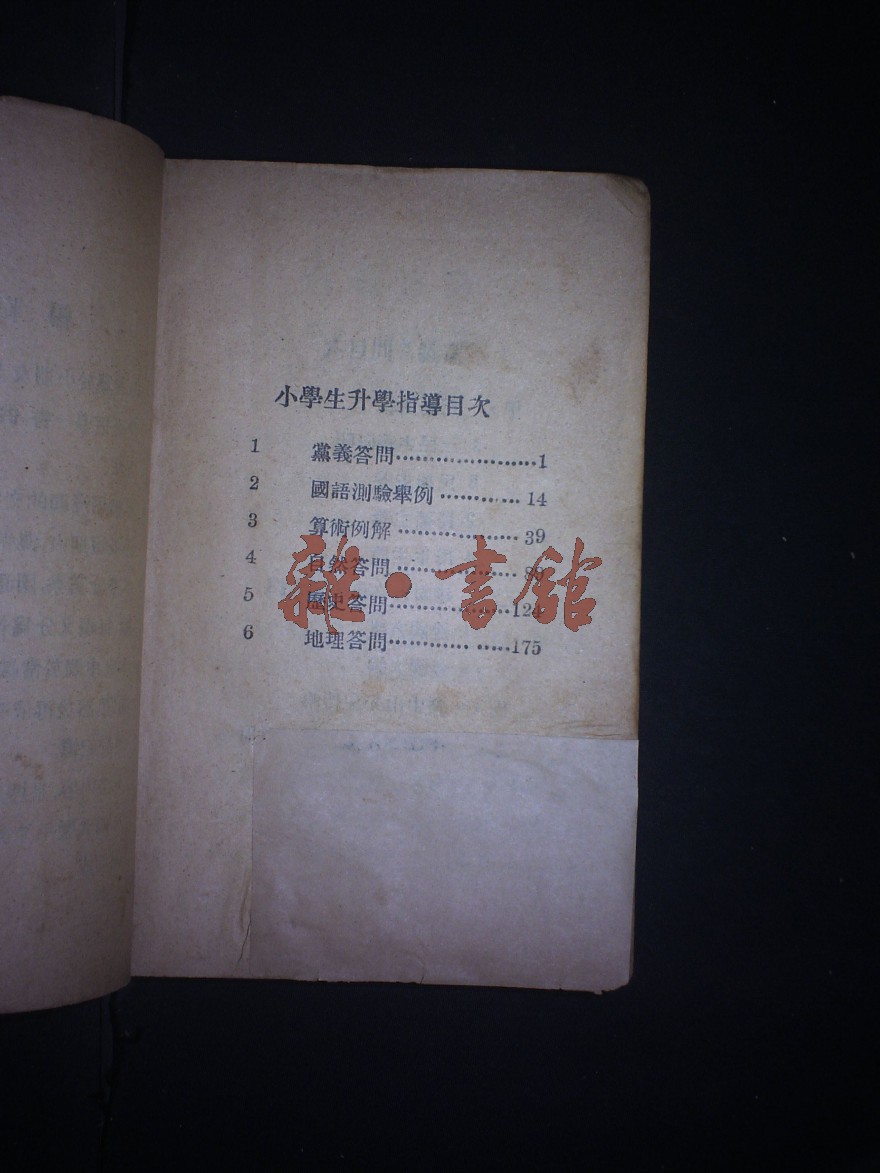 小學生升學指導目次
1 黨義答問……………………1
2 國語測驗舉例…………14
3 算術例解………………39
4 自然答問………………89
5 歷史答問………………124
6 地理答問………… ……175
雜·書館